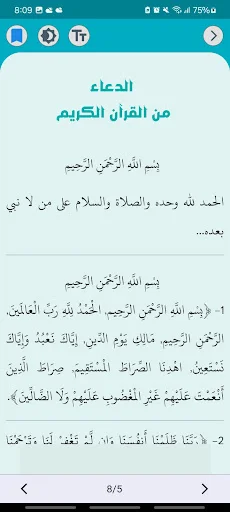 8:09
75%
TT
الدعاء
من القرآن الكريم
بِسْمِ اللَّهِ الرَّحْمَنِ الرَّحِيمِ
الحمد لله وحده والصلاة والسلام على من لا نبي
بعده...
بِسْمِ اللَّهِ الرَّحْمَنِ الرَّحِيمِ
1- ﴿بِسْمِ اللَّهِ الرَّحْمَنِ الرَّحِيمِ. الْحَمْدُ لِلَّهِ رَبِّ الْعَالَمِينَ.
الرَّحْمَنِ الرَّحِيمِ. مَالِكِ يَوْمِ الدِّينِ. إِيَّاكَ نَعْبُدُ وَإِيَّاكَ
نَسْتَعِينُ. اهْدِنَا الصِّرَاطَ الْمُسْتَقِيمَ. صِرَاطَ الَّذِينَ
أَنْعَمْتَ عَلَيْهِمْ غَيْرِ الْمَغْضُوبِ عَلَيْهِمْ وَلَا الضَّالِّينَ﴾.
2- ﴿رَبَّنَا ظَلَمْنَا أَنفُسَنَا وَإِن لَّمْ تَغْفِرْ لَنَا وَتَرْحَمْنَا
8/5